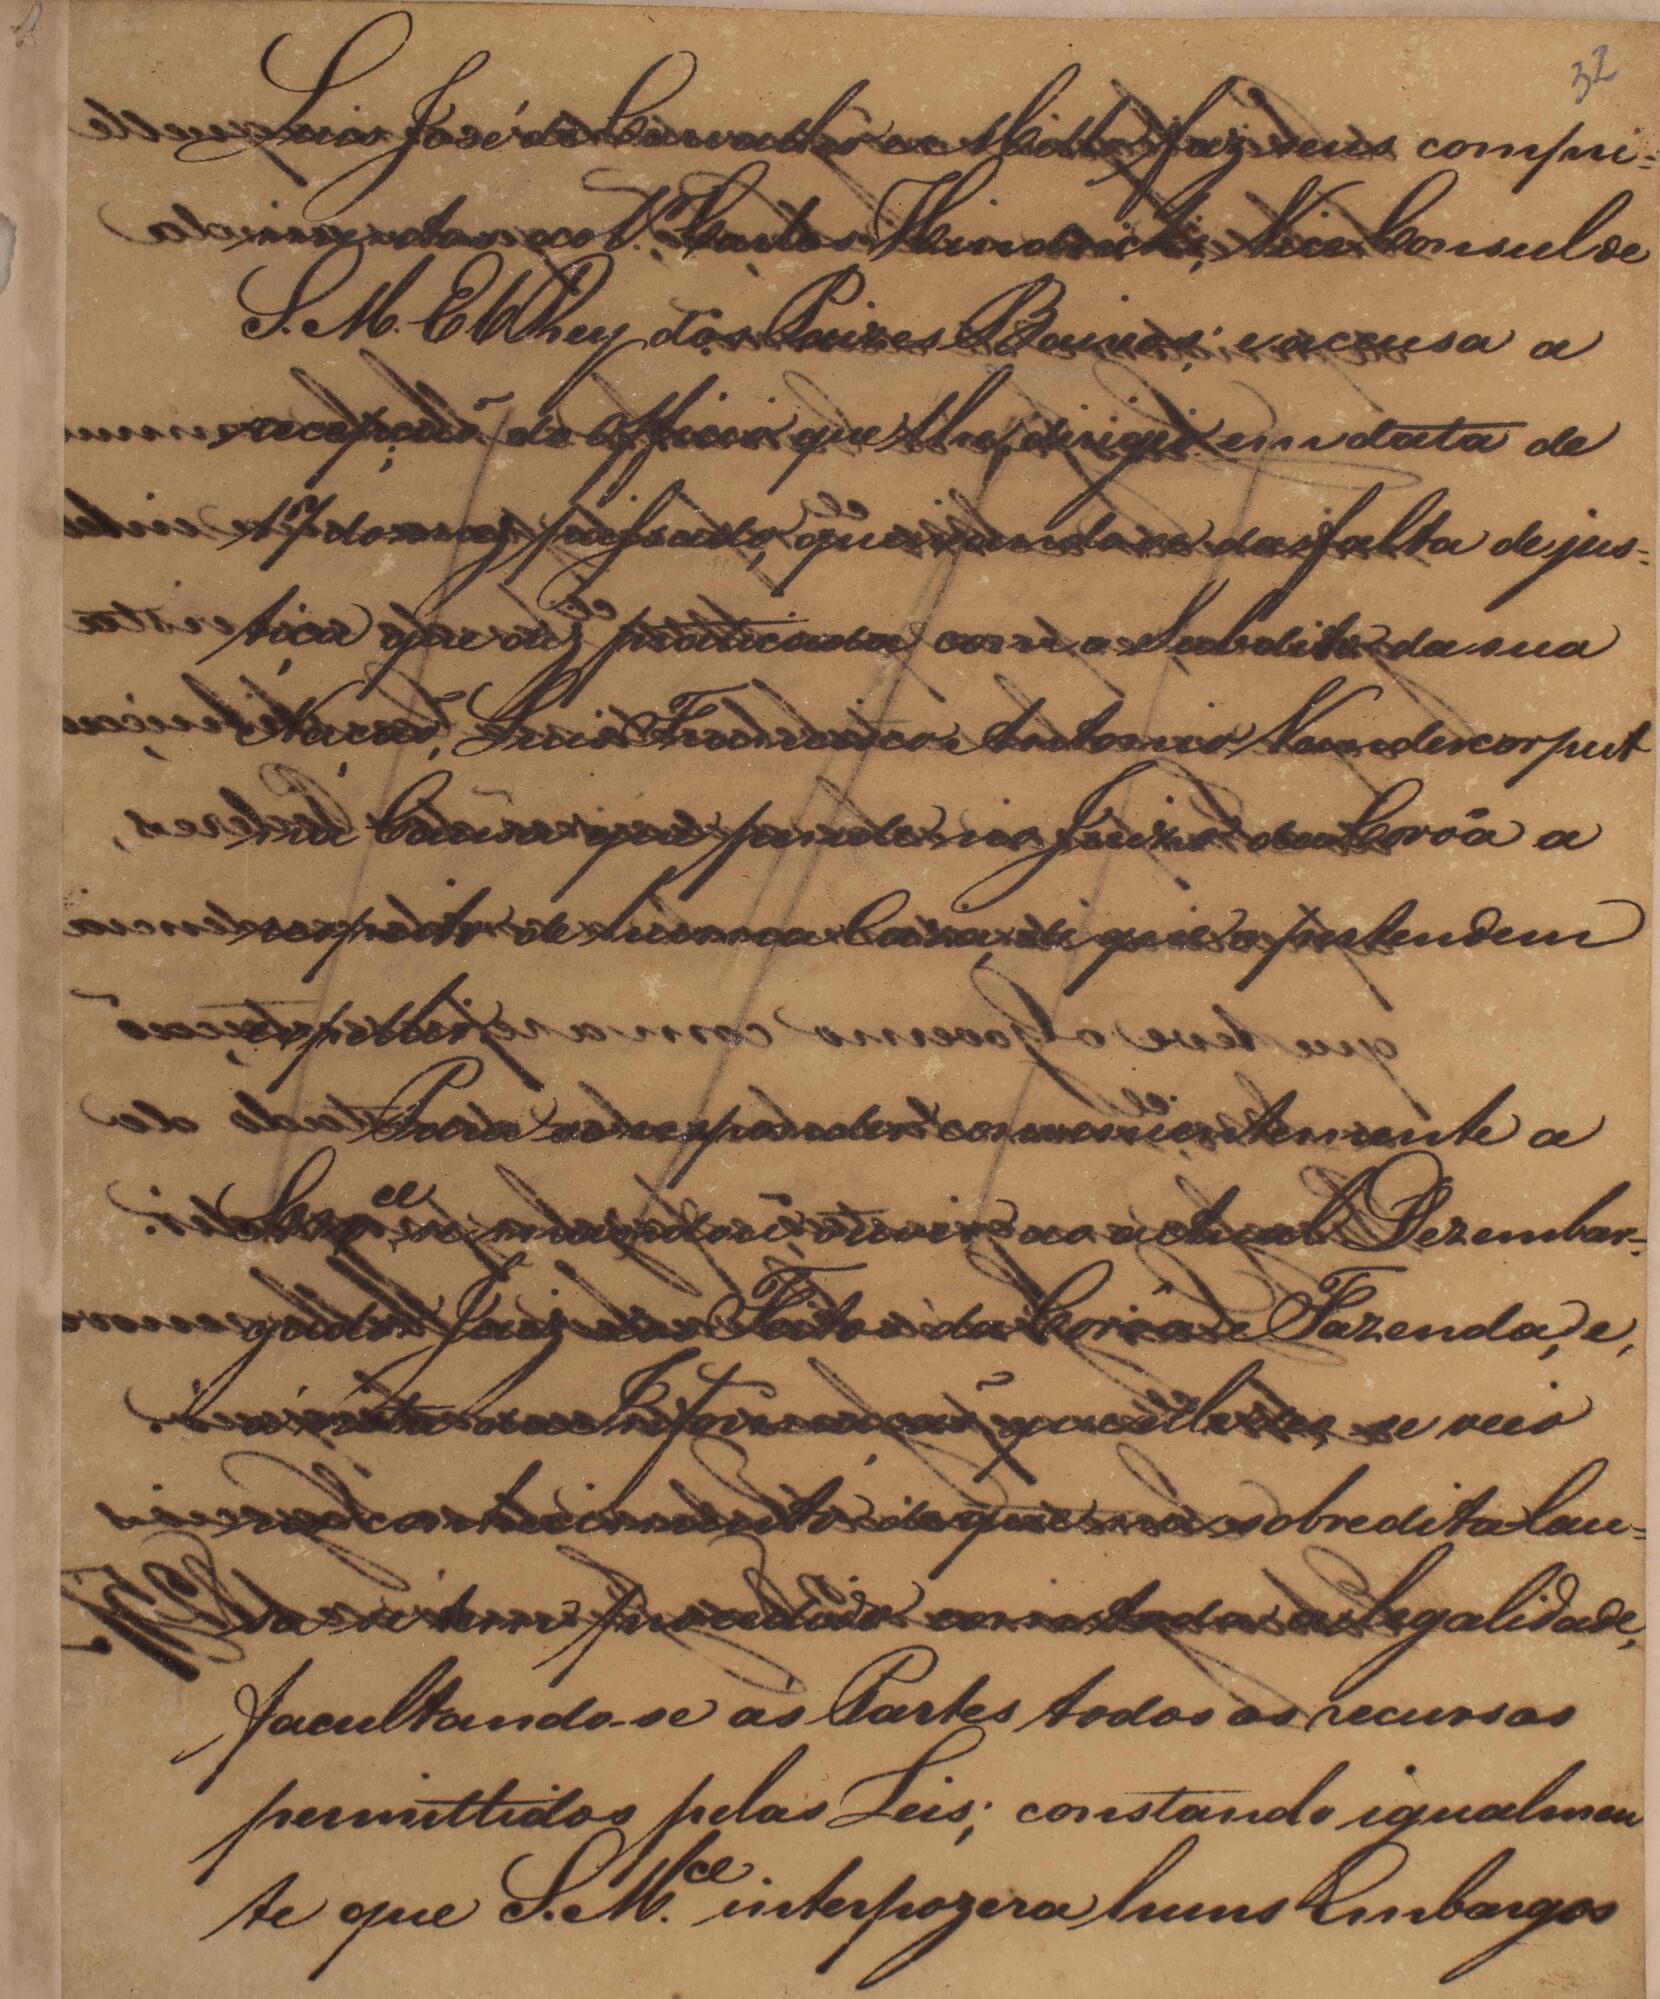 32
Luis José de Carvalho e Mello faz seus compri=
mentos ao Sr. Carlos Hindricks, Vice Consul de
S. M. ElRey dos Paizes Baixos; e accusa a
recepção do Officio que lhe dirigi em data de
17 do mez passado, queixando-se da falta de jus=
tiça que diz praticada com o Subdito da sua
Nação, Luis Frederico Antonio Vandercorput
na Causa que pende no Juizo da Corôa a
respeito de huma Caza, de que o pretendem
espellir.
Para responder convenientemente a
S. M.ce se mandou ouvir ao actual Dezembar=
gador Juiz dos Feitos da Corôa e Fazenda, e,
á vista da Informação que deu, se veio
no conhecimento de que na sobredita Cau=
sa se tem procedido com toda a legalidade,
facultando-se ás Partes todos os recursos
permittidos pelas Leis; constando igualmen
te que S. M.ce interpozera huns Embargos